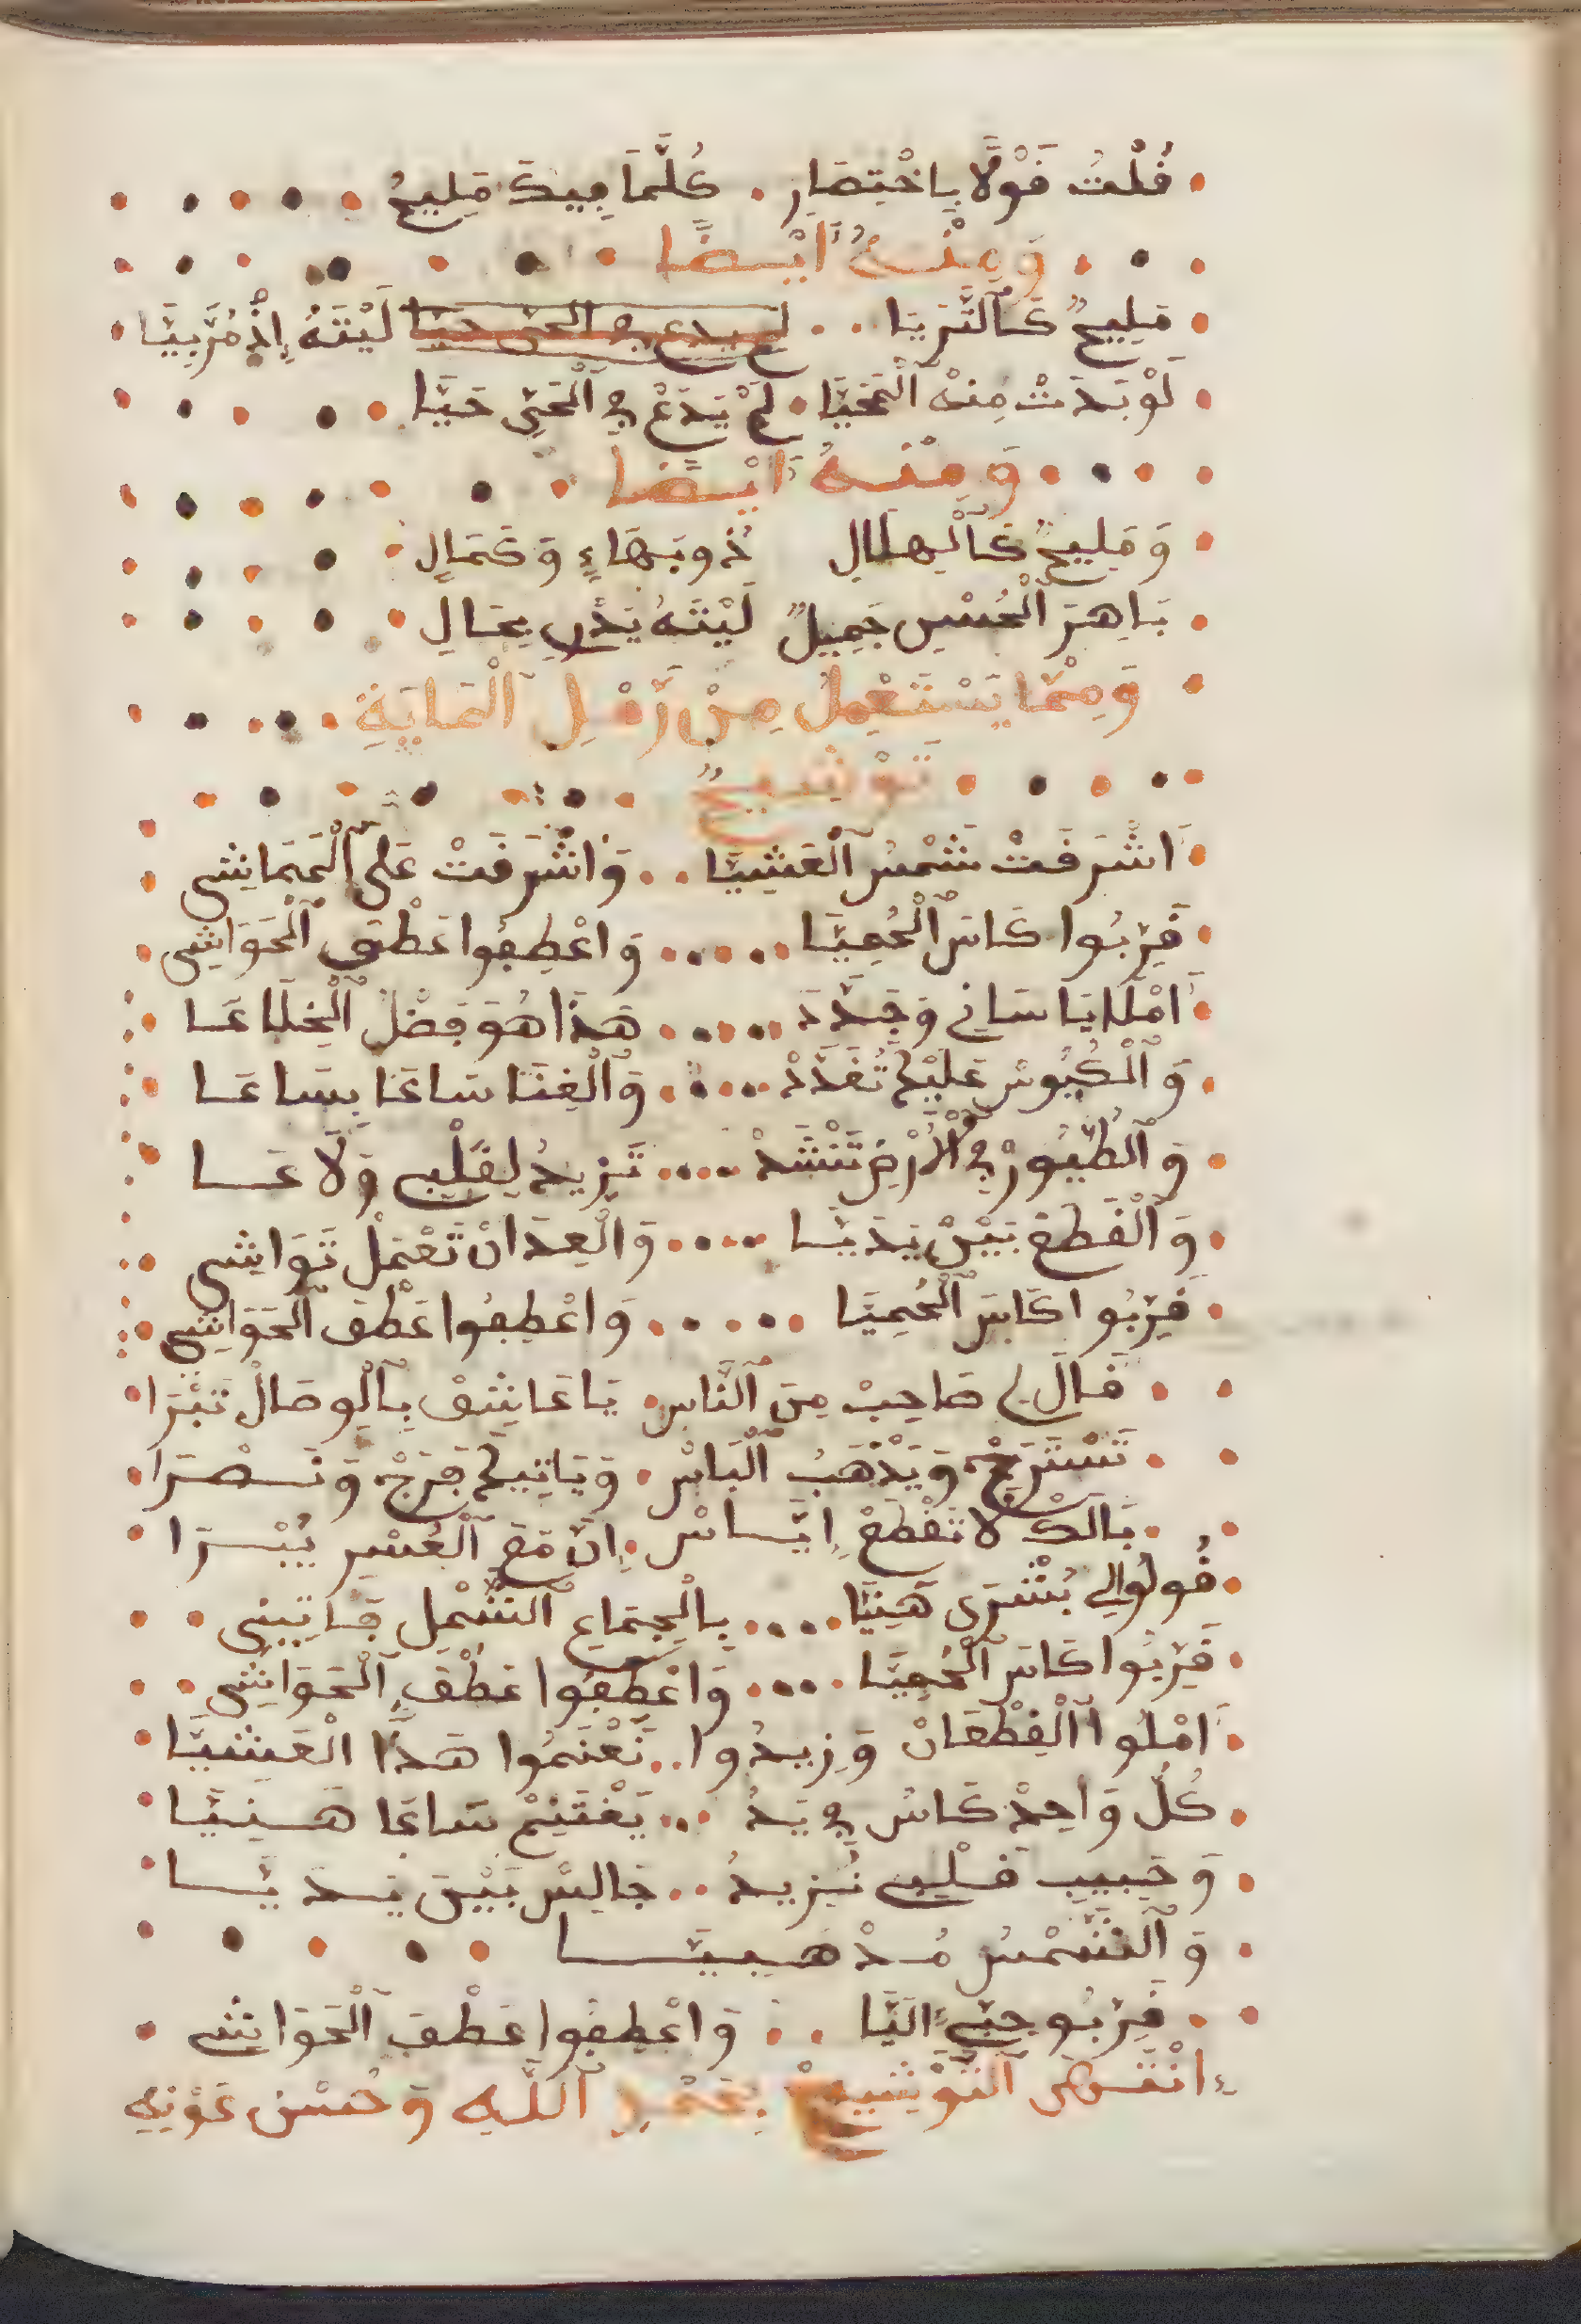 قُلْتُ قَوْلًا بِاخْتِصَارِ . كُلَّمَا فِيكَ مَلِيحُ
وَمِنْهُ أَيْضًا
مَلِيحٌ كَالثُّرَيَّا .. لم يدع في الحي حيا لَيْتَهُ إِذْ مُرَّبِيَّا
لَوْ بَدَتْ مِنْهُ الْمُحَيَّا . لَمْ يَدَعْ فِي الْحَيِّ حَيَّا
وَمِنْهُ أَيْضًا
وَمَلِيحٌ كَالْهِلَالِ ذُو بَهَاءٍ وَكَمَالِ
بَاهِرَ الْحُسْنِ جَمِيلٌ لَيْتَهُ يَدْرِ بِحَالِ
وَمِمَّا يَسْتَعْمِلُ مِنْ رَمْلِ الْمَايَةِ
تَوْشِيحٌ
اَشْرَقَتْ شَمْسُ الْعَشِيَّا .. وَاشْرَقَتْ عَلَى الْمَمَاشِي
قَرِّبُوا كَاسَ الْحُمِيَّا ..... وَاعْطِفُوا عَطْفَ الْحَوَاشِي
اَمْلَا يَا سَاقِي وَجَدَّدَ ..... هَذَا هُوَ فَضْلَ الْخَلَاعَا
وَالْكُيُوسْ عَلَيْكَ تُغَدَّدْ ..... وَالْغِنَا سَاعَا بِسَاعَا
وَالطُّيُورْ فِي الْأَرْضِ تَنْشَدْ .... تَزِيدُ لِقَلْبِي وَلَاعَا
وَالْقَطِعْ بَيْنْ يَدَيَّا ..... وَالْعِدَانْ تَعْمَلْ تَوَاشِي
قَرِّبُوا كَاسَ الْحُمِيَّا ..... وَاعْطِفُوا عَطْفَ الْحَوَاشِي
قَالَ لِي صَاحِبْ مِنَ النَّاسِ . يَا عَاشِقْ بِالْوِصَالْ تَبْرَا
تَسْتَرِيحْ وَيَذْهَبُ الْبَاسْ . وَيَاتِيكَ فَرَجْ وَنَصْرَا
بَالَكْ لَا تَقْطَعْ اِيَّاسْ . إِنَّ مَعَ الْعُسْرِ يُسْرَا
قُولُوا لِي بُشْرَى هَنِيَّا .... بِاجْتِمَاعِ الشَّمْلِ فَاتِنِي
قَرِّبُوا كَاسَ الْحُمِيَّا .... وَاعْطِفُوا عَطْفَ الْحَوَاشِي
اَمْلُوا الْقِطْعَانْ وَزِيدُوا .. نَغْنَمُوا هَذَا الْعَشِيَّا
كُلُّ وَاحِدْ كَاسُ فِي يَدُ ... يَغْتَنِمْ سَاعَا هَنِيَّا
وَحَبِيبِ قَلْبِي نُرِيدُ .. جَالِسْ بَيْنَ يَدَيَّا
وَالشَّمْسُ مُذْهَبِيَّا
قَرِّبُو حِبِّي اِلَيَّا .. وَاعْطِفُوا عَطْفَ الْحَوَاشِي
انْقَضَى التَّوْشِيحُ بِحَمْدِ اللَّهِ وَحُسْنِ عَوْنِهِ